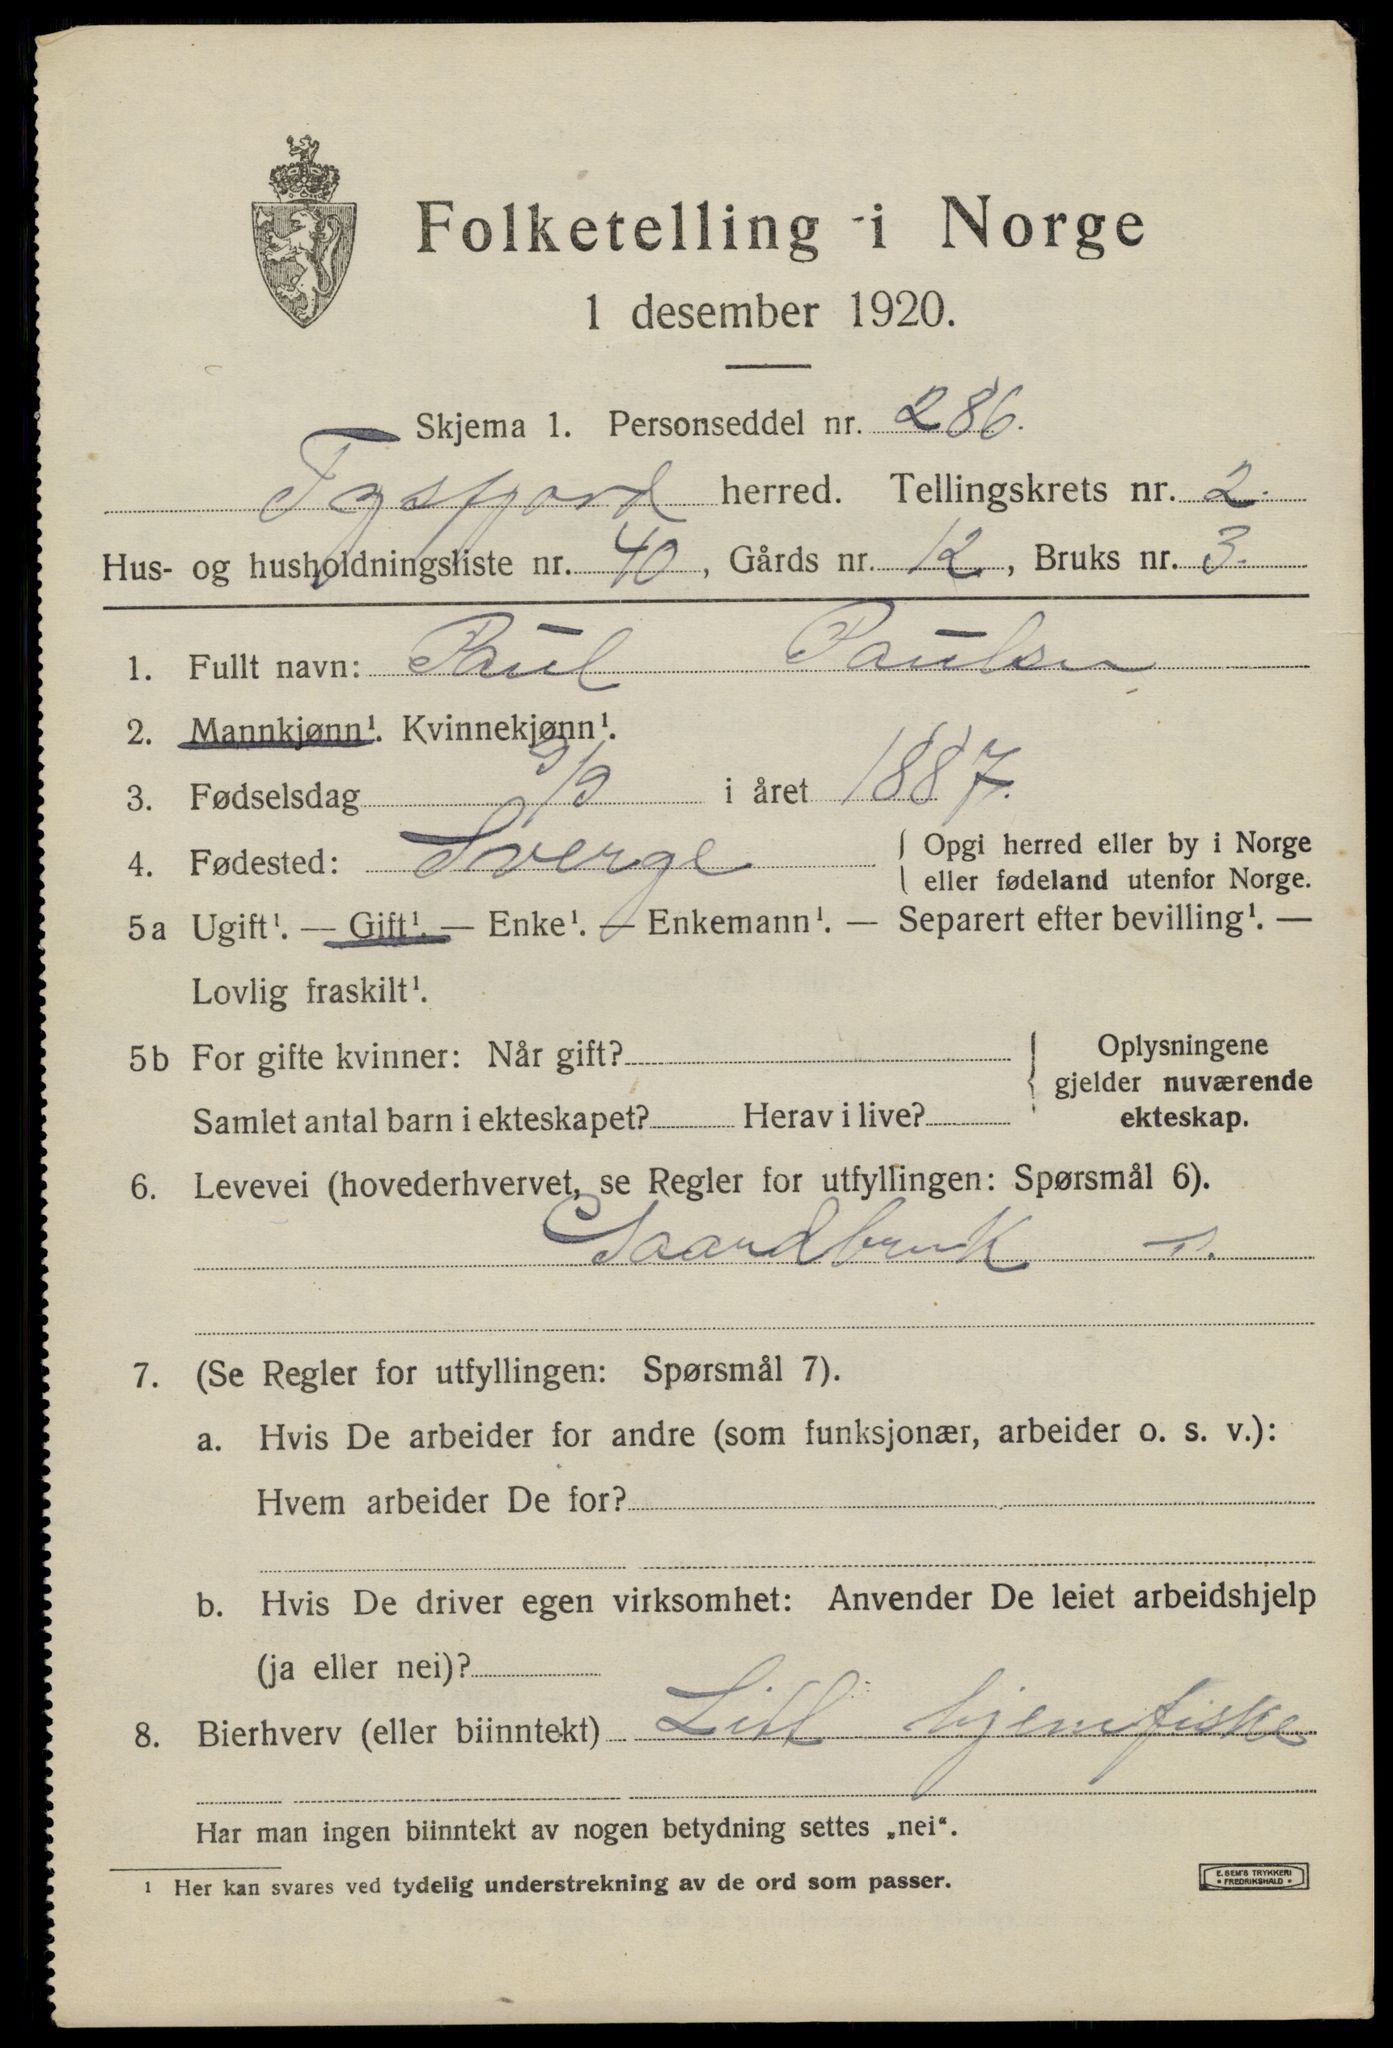 Folketelling i Norge
1 desember 1920.
Skjema 1. Personseddel nr. 286.
Tysfjord herred. Tellingskrets nr. 2.
Hus- og husholdningsliste nr. 40, Gårds nr. 12., Bruks nr. 3.
1. Fullt navn: Paul Paulsen
2. Mannkjønn¹. Kvinnekjønn¹.
3. Fødselsdag 9/9 i året 1887.
4. Fødested: Sverge { Opgi herred eller by i Norge
eller fødeland utenfor Norge.
5a Ugift¹. — Gift¹. — Enke¹. — Enkemann¹. — Separert efter bevilling¹. —
Lovlig fraskilt¹.
5b For gifte kvinner: Når gift?
Samlet antal barn i ekteskapet? Herav i live?
{ Oplysningene
gjelder nuværende
ekteskap.
6. Levevei (hovederhvervet, se Regler for utfyllingen: Spørsmål 6).
Gaardbruk s.
7. (Se Regler for utfyllingen: Spørsmål 7).
a. Hvis De arbeider for andre (som funksjonær, arbeider o. s. v.):
Hvem arbeider De for?
b. Hvis De driver egen virksomhet: Anvender De leiet arbeidshjelp
(ja eller nei)?
8. Bierhverv (eller biinntekt) Litt hjemfiske
Har man ingen biinntekt av nogen betydning settes „nei“.
¹ Her kan svares ved tydelig understrekning av de ord som passer.
E. SEM'S TRYKKERI
• FREDRIKSHALD •